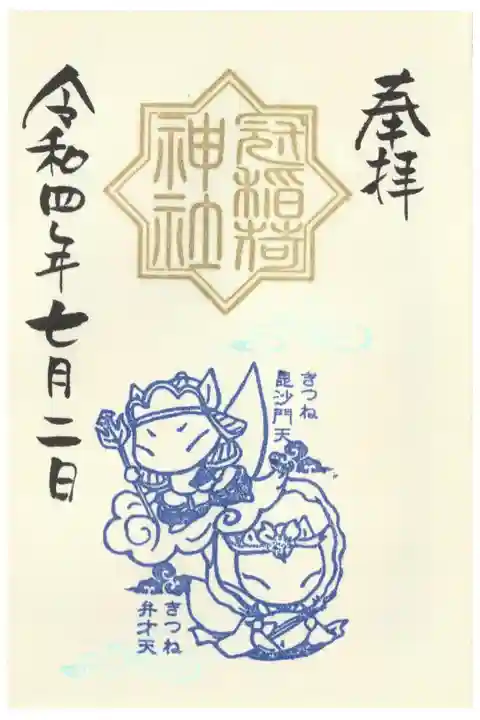 奉拝
冠稲荷
神社
きつね
毘沙門天
きつね
弁才天
令和四年七月二日